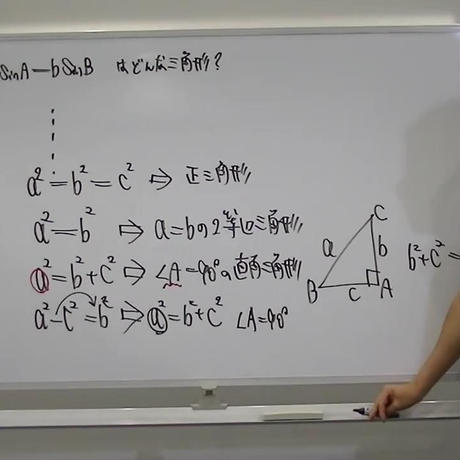 sinA－bsinB はどんな三角形？
a²=b²=c² ⇨ 正三角形
a²=b² ⇨ a=bの2等辺三角形
a²=b²+c² ⇨ ∠A=90°の直角三角形
a²-c²=b² ⇨ a²=b²+c² ∠A=90°
C
a
b
B
c
A
b²+c²=